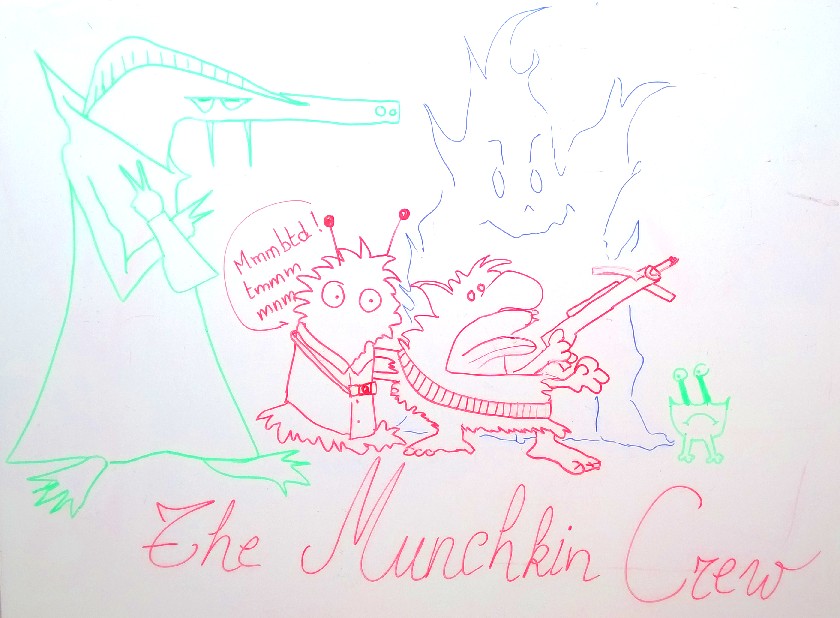 Mmmbtd!
tmmm
mnm
The Munchkin Crew